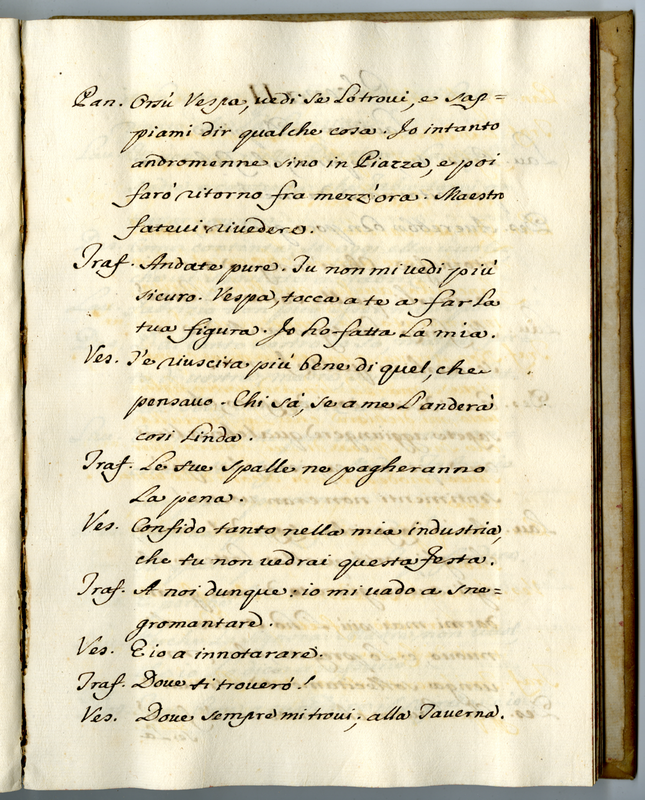 Pan. Orsù Vespa, vedi se Lo trovi, e sap=
piami dir qualche cosa. Io intanto
andromenne sino in Piazza, e poi
farò ritorno fra mezz'ora. Maestro
fatevi rivedere.
Traf. Andate pure. Tu non mi vedi più
sicuro. Vespa, tocca a te a far la
tua figura. Io ho fatta la mia.
Ves. T'è riuscita più bene di quel, che
pensavo. Chi sà, se a me l'anderà
così linda.
Traf. Le sue spalle ne pagheranno
La pena.
Ves. Confido tanto nella mia industria,
che tu non vedrai questa festa.
Traf. A noi dunque: io mi vado a sne=
gromantare.
Ves. E io a innotarare.
Traf. Dove ti troverò?
Ves. Dove sempre mi trovi; alla Taverna.